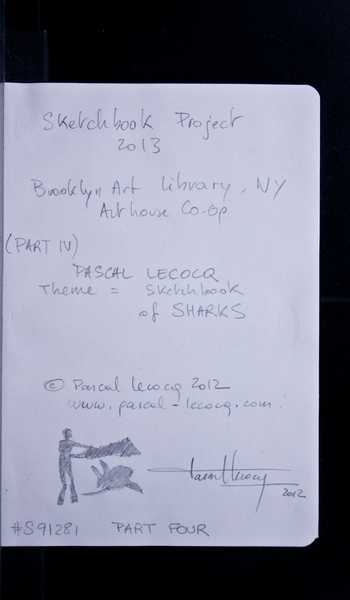 Sketchbook Project
2013
Brooklyn Art Library, NY
Art house Co-op
(PART IV)
PASCAL LECOCQ
Theme = Sketchbook
of SHARKS
© Pascal Lecocq 2012
www.pascal-lecocq.com
Pascal Lecocq
2012
#S91281 PART FOUR